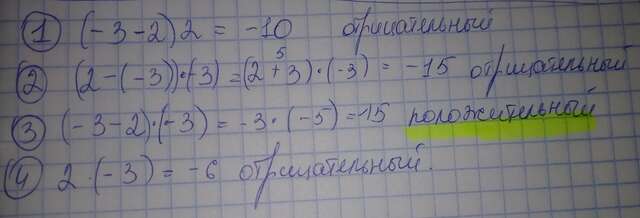 1 (-3-2)2 = -10 отрицательный
2 (2-(-3))·(3) = (2+3)·(-3) = -15 отрицательный
5
3 (-3-2)·(-3) = -3·(-5) = 15 положительный
4 2·(-3) = -6 отрицательный.